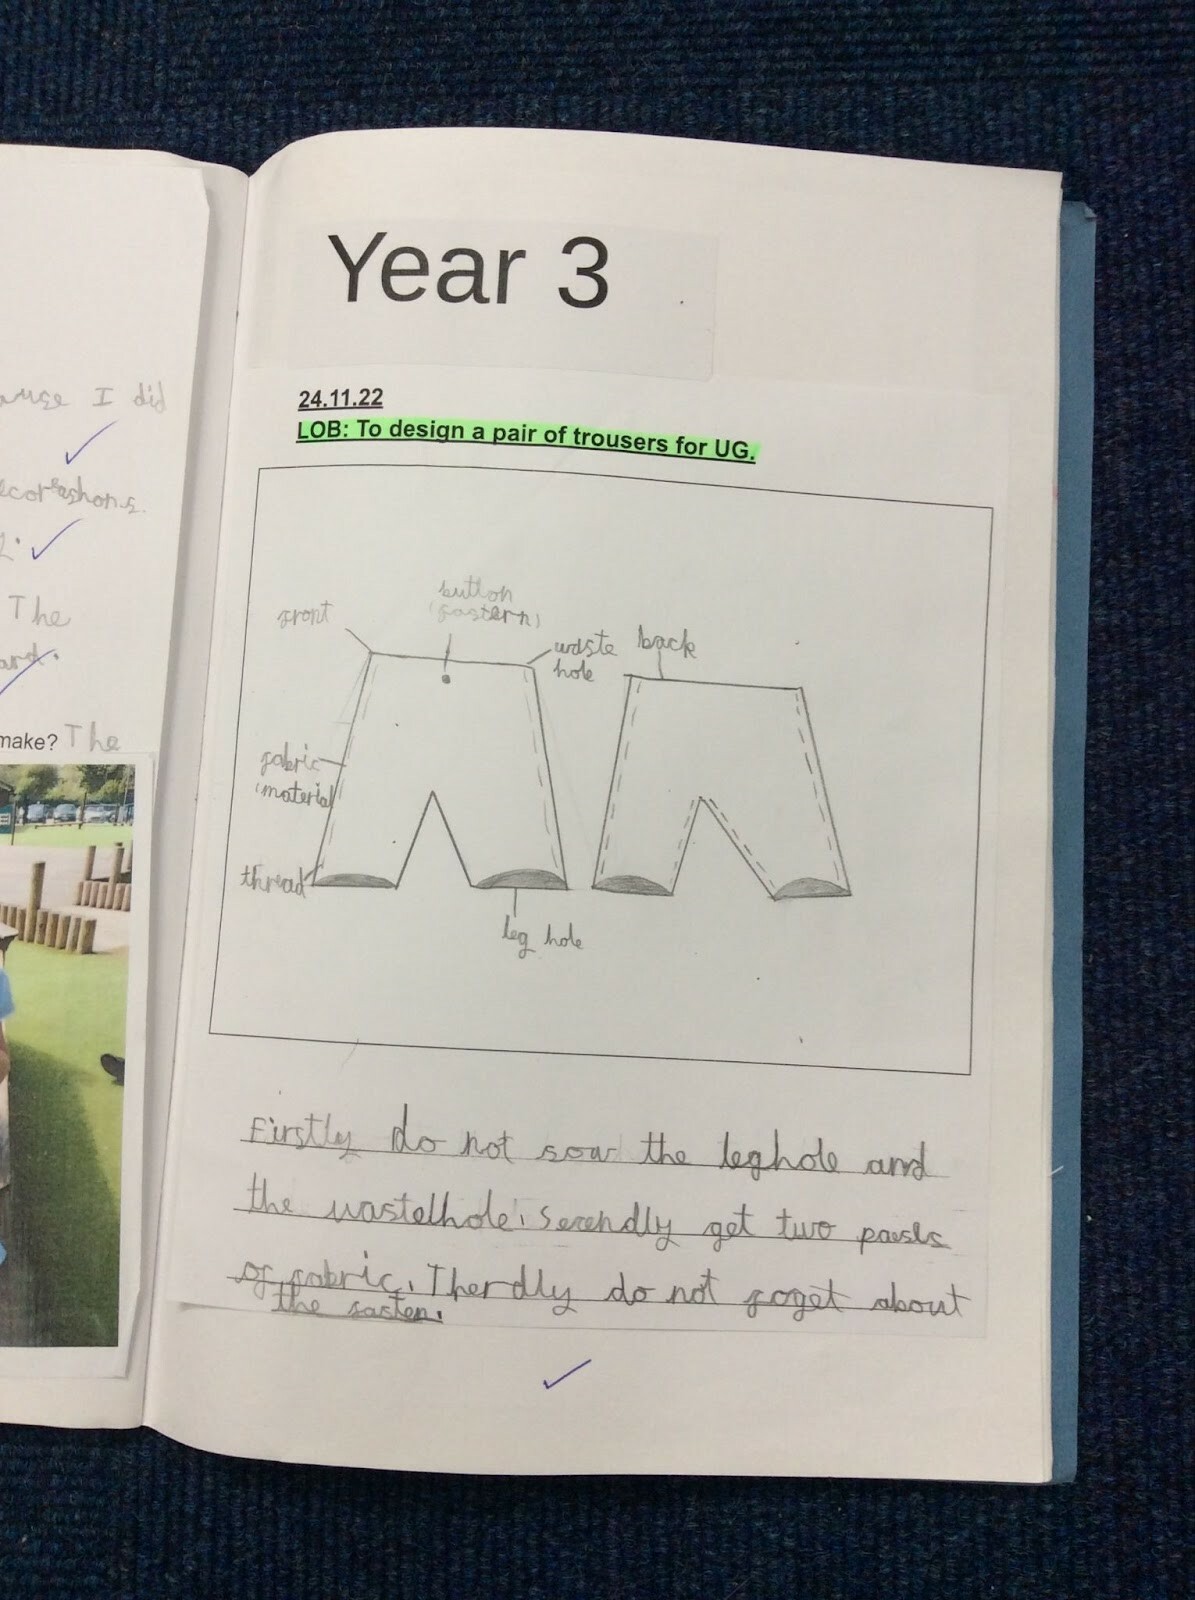 ause I did
The
make? The
Year 3
24.11.22
LOB: To design a pair of trousers for UG.
button
(fastern)
front
waste
hole
back
fabric
(material
thread
leg hole
Firstly do not sow the leghole and
the wastelhole. Secendly get two
of fabric. Therdly do not foget about
the fasten.